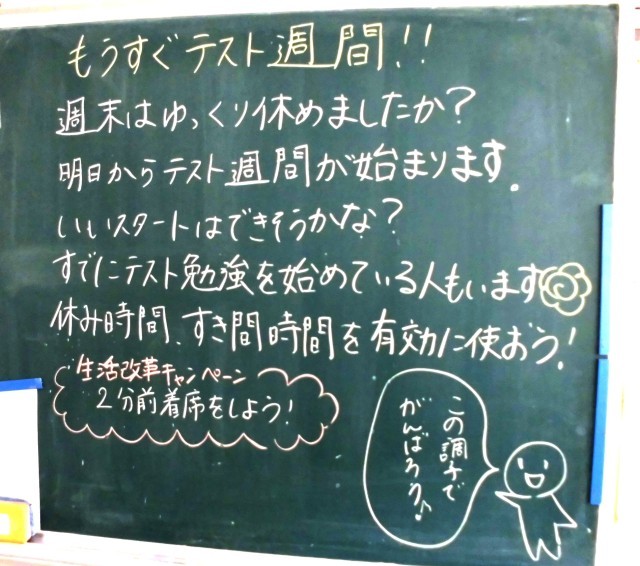 もうすぐテスト週間!!
週末はゆっくり休めましたか?
明日からテスト週間が始まります。
いいスタートはできそうかな?
すでにテスト勉強を始めている人もいます
休み時間、すき間時間を有効に使おう!
生活改革キャンペーン
2分前着席をしよう!
この調子で
がんばろう♪